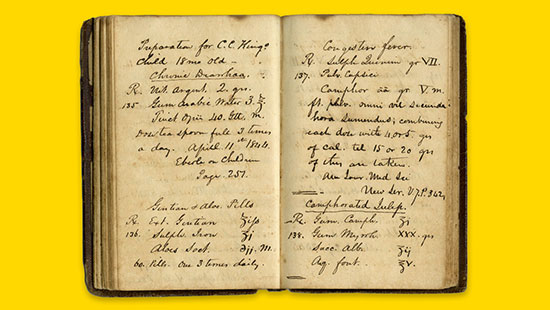 Preparation for C.C. King's
Child 18 mo old -
Chronic Diarrhaa.
R. Nit. Argent. 2. grs.
135 Gum Arabic Water 3. ℥
Tinct Opii 40. Gtt. m.
Dose tea spoon full 3 times
a day. April 11th 1844.
Eberle on Children
Page. 257.
Gentian & Aloes Pills
R. Ext. Gentian ʒiſs
136. Sulph Iron ʒj
Aloes Soct. ℈jj. M.
60. Pills. One 3 times daily.
Congestive fever.
R. Sulph Quinum gr VII.
137. Pulv. Capsici
Camphor aa gr V. m.
ft. pulv. omni vel secunda
hora sumendus; combining
each dose with 4 or 5 grs
of cal. til 15 or 20 grs
of this are taken.
Am Jour. Med Sci
New Ser. V. 7. P. 342.
Camphorated Julep.
R. Gum. Camph. ʒj
138. Gum Myrrh. XXX. grs
Sacc. Alb. ʒij
Aq. font. ℥v.